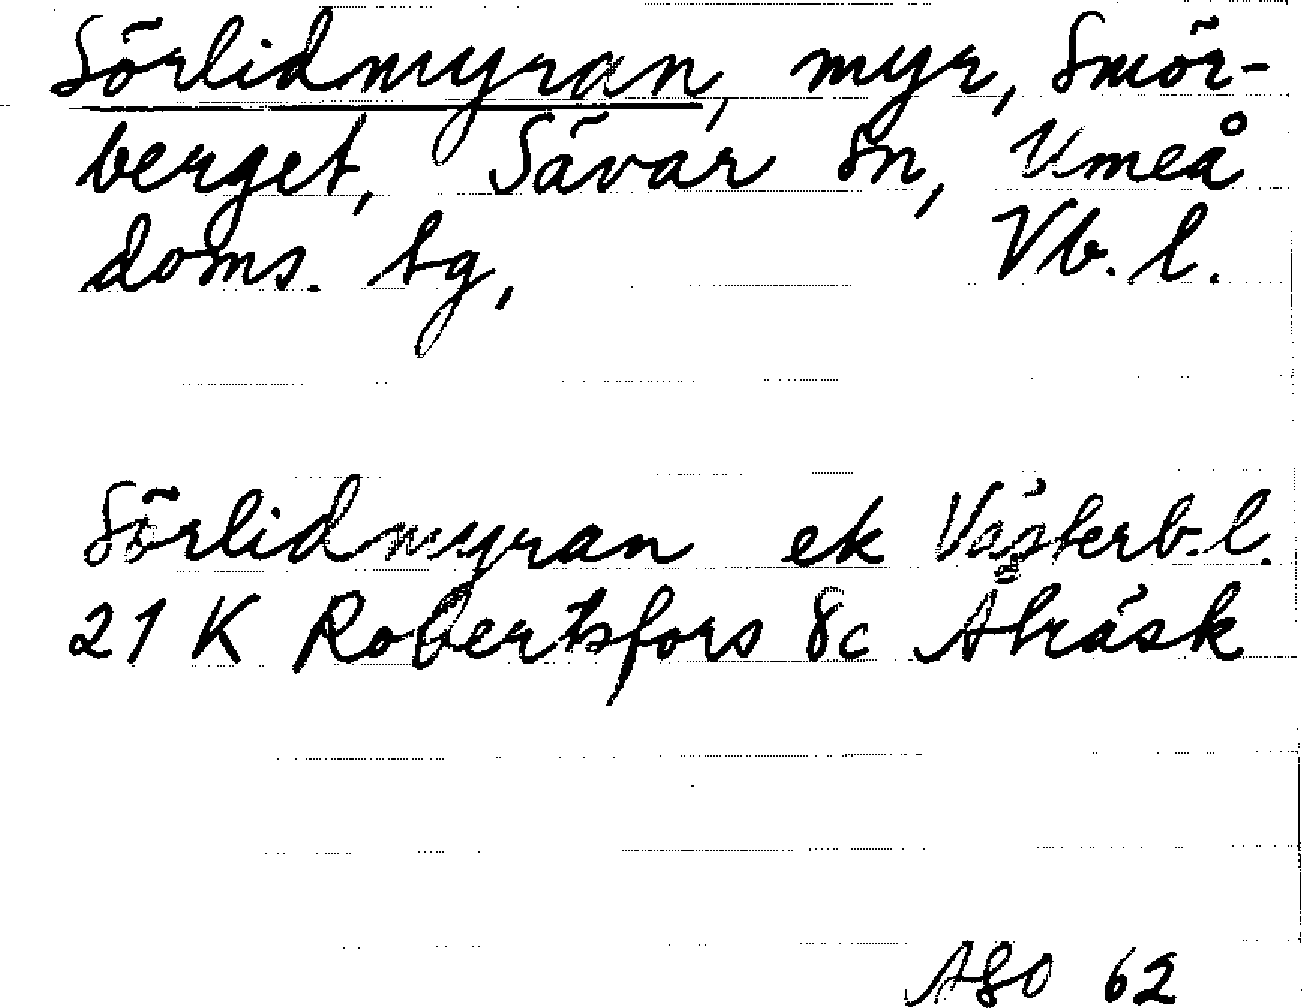 Sörlidmyran, myr, Smör-
berget, Sävar sn, Umeå
doms. sg, Vb. l.
Sörlidmyran ek Västerb. l.
21 K Robertsfors 8c Åträsk
ASO 62